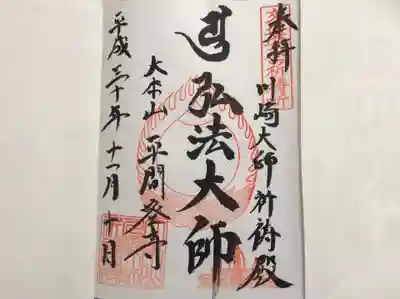 奉拝
川崎大師祈祷殿
弘法大師
大本山
平間寺
平成三十年十一月十日